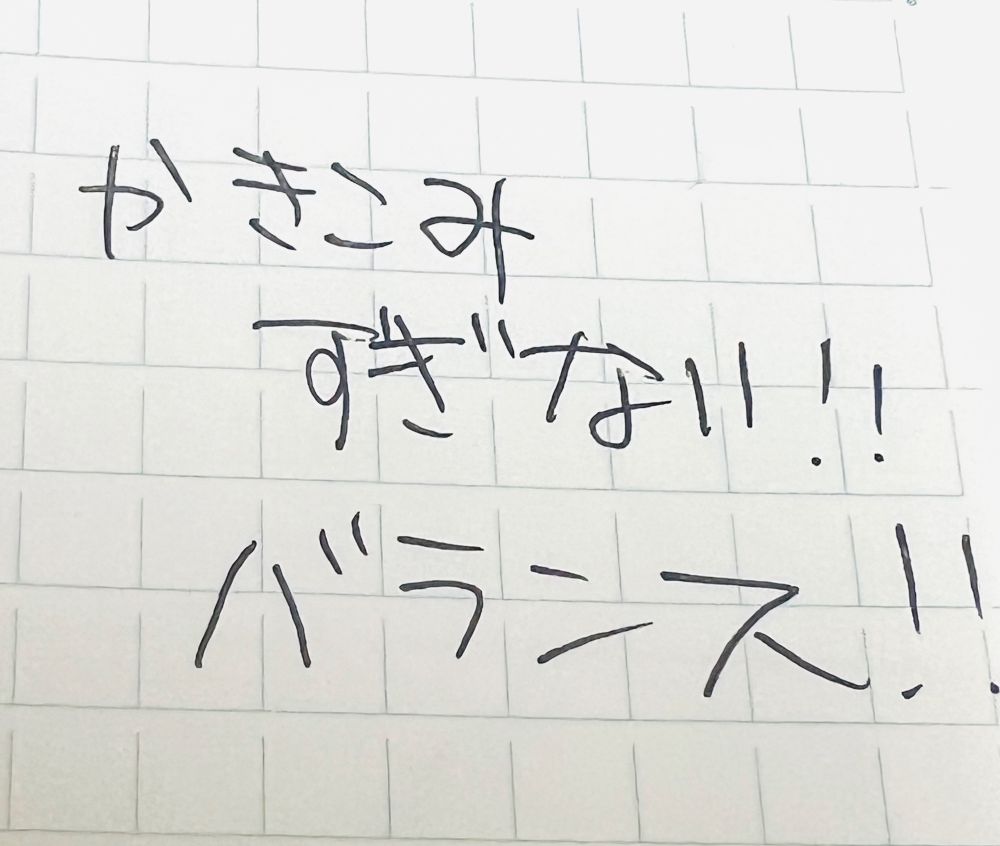 かきこみ
すぎない!!
バランス!!